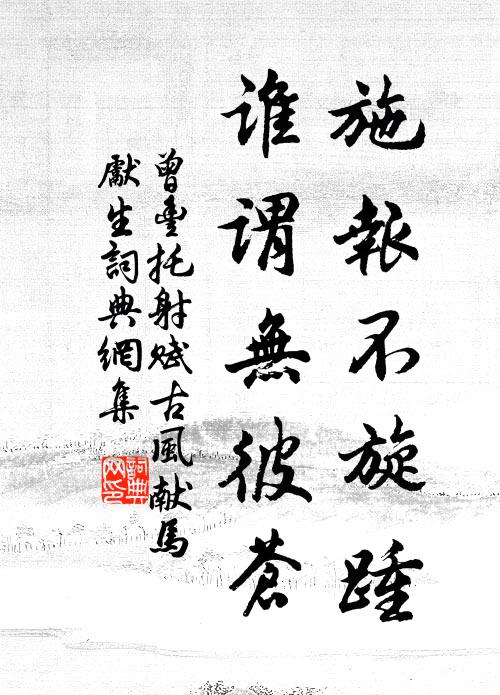 施報不旋踵
誰謂無彼蒼
曾豐托射賦古風獻馬
獻生詞典網集
詞典網印